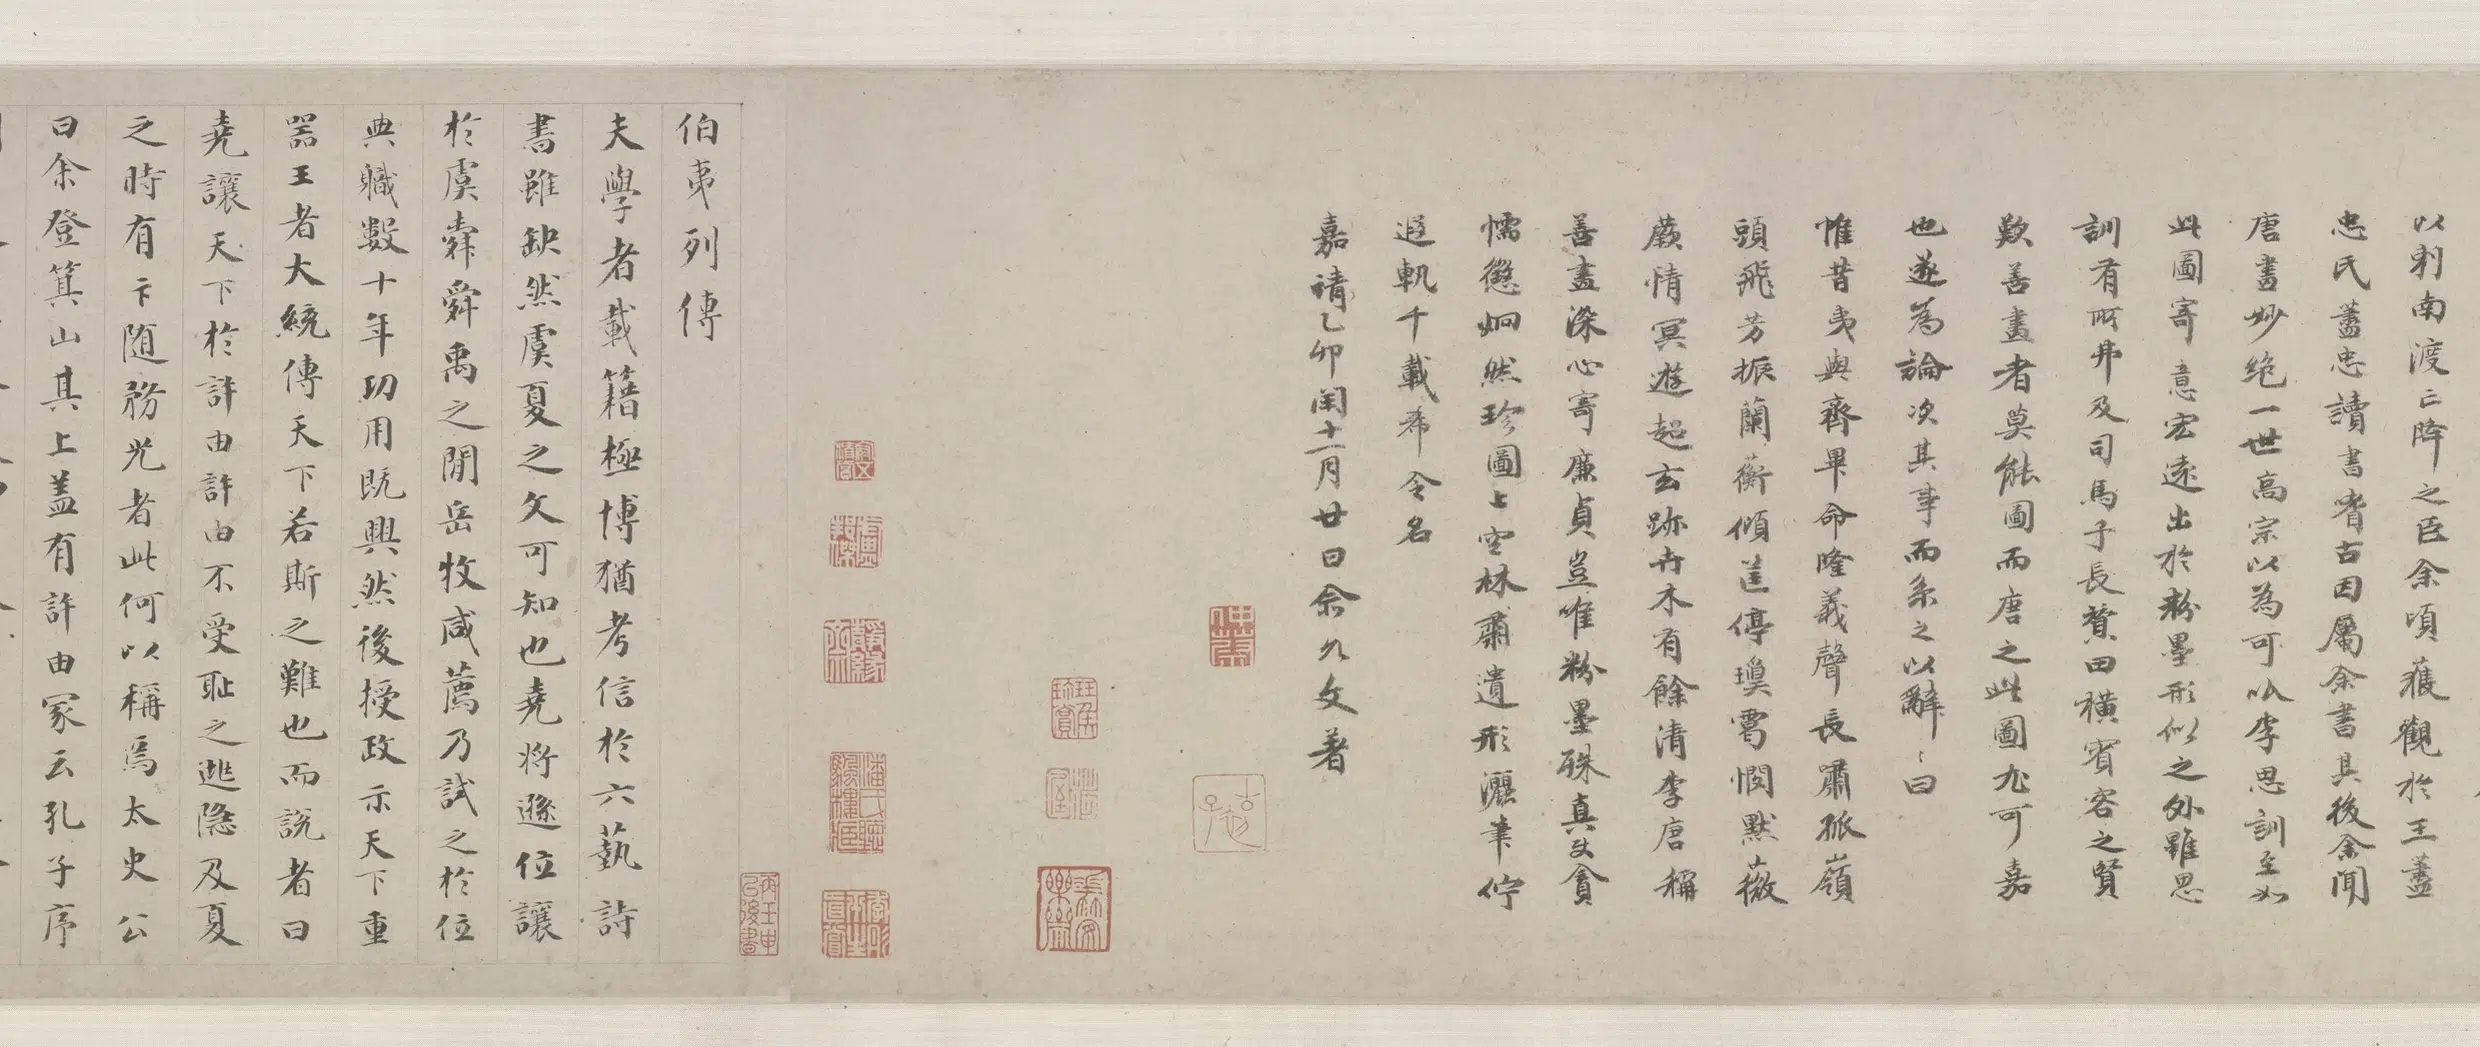 以刺南渡亡降之臣余頃獲觀於王藎
忠氏藎忠讀書嗜古因屬余書其後余聞
唐畫妙絶一世高宗以為可以李思訓至如
此圖寄意宏遠出於粉墨形似之外雖思
訓有所弗及司馬子長贊田橫賓客之賢
歎善畫者莫能圖而唐之此圖尤可嘉
也遂為論次其事而系之以辭辭曰
惟昔夷與齊畢命隆義聲長嘯孤嶺
頭飛芳振蘭蘅傾筐停瓊芻憫默薇
蕨情冥遊超玄跡卉木有餘清李唐稱
善畫深心寄廉貞豈唯粉墨殊真失貪
懦懲炯然珍圖上空林肅遺形灑筆佇
遐軌千載希令名
嘉靖乙卯閏十一月廿日俞允文著
伯夷列傳
夫學者載籍極博猶考信於六藝詩
書雖缺然虞夏之文可知也堯將遜位讓
於虞舜舜禹之閒岳牧咸薦乃試之於位
典職數十年功用既興然後授政示天下重
器王者大統傳天下若斯之難也而說者曰
堯讓天下於許由許由不受恥之逃隱及夏
之時有卞隨務光者此何以稱焉太史公
曰余登箕山其上蓋有許由冢云孔子序